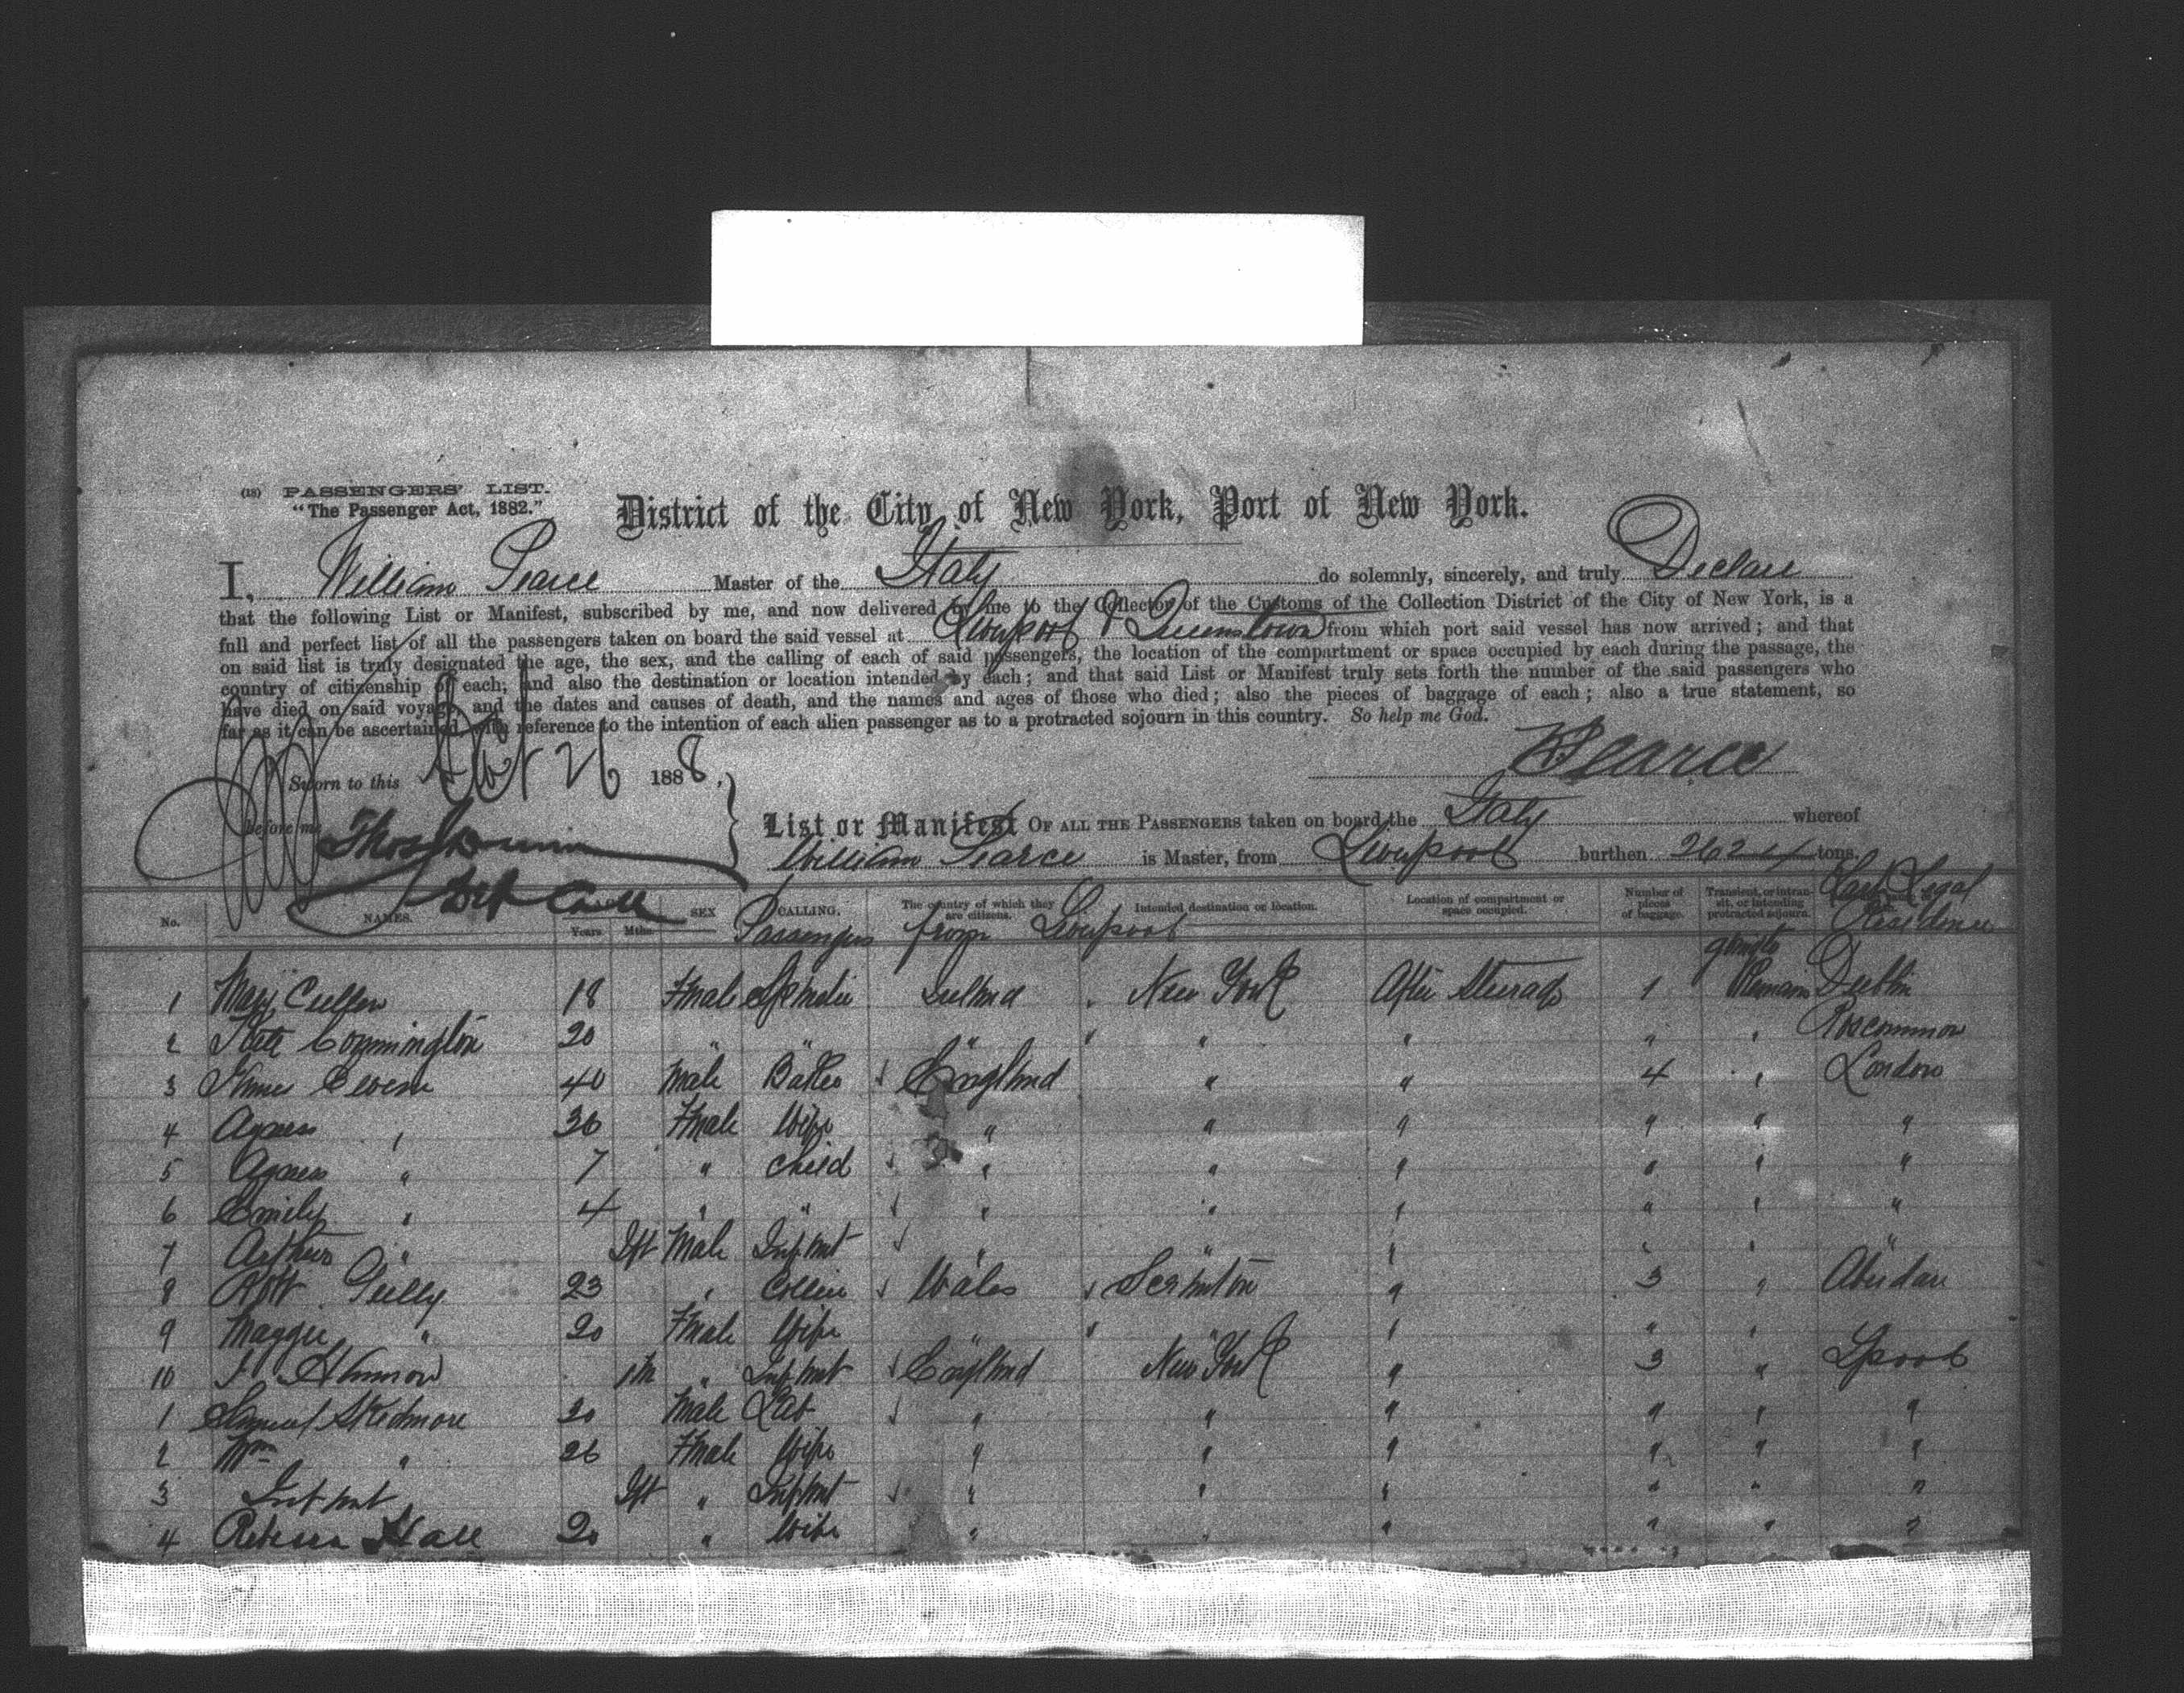 (18) PASSENGERS' LIST.
"The Passenger Act, 1882."
District of the City of New York, Port of New York.
I, William Pearce Master of the Italy do solemnly, sincerely, and truly Declare
that the following List or Manifest, subscribed by me, and now delivered by me to the Collector of the Customs of the Collection District of the City of New York, is a
full and perfect list of all the passengers taken on board the said vessel at Liverpool & Queenstown from which port said vessel has now arrived; and that
on said list is truly designated the age, the sex, and the calling of each of said passengers, the location of the compartment or space occupied by each during the passage, the
country of citizenship of each; and also the destination or location intended by each; and that said List or Manifest truly sets forth the number of the said passengers who
have died on said voyage, and the dates and causes of death, and the names and ages of those who died; also the pieces of baggage of each; also a true statement, so
far as it can be ascertained, with reference to the intention of each alien passenger as to a protracted sojourn in this country. So help me God.
WPearce
Sworn to this Oct 26 1888,
before me Thos
List or Manifest OF ALL THE PASSENGERS taken on board the Italy whereof
William Pearce is Master, from Liverpool burthen 2624 tons.
No. NAMES. Years Mths. SEX CALLING. The country of which they are citizens. Intended destination or location. Location of compartment or space occupied. Number of pieces of baggage. Transient, or in transit, or intending protracted sojourn. Last Legal Residence
Passengers from Liverpool
1 Mary Cullen 18 Fmale Ireland New York After Steerage 1 Remain Dublin
2 Kate Connington 20 " " " " " " " Roscommon
3 James 40 Male England " " 4 " London
4 Agnes " 36 Fmale Wife " " " " " "
5 Agnes " 7 " Child " " " " " "
6 Emily " 4 " " " " " " " "
7 Arthur " Ift Male Infant " " " " " "
8 Robt Gully 23 " Collier Wales Scranton " 3 " Aberdare
9 Maggie " 20 Fmale Wife " " " " "
10 1m " Infant England New York " 3 " Lpool
1 Samuel Skidmore 30 Male Lab " " " " " "
2 " 26 Fmale Wife " " " " " "
3 Infant Ift " Infant " " " " " "
4 Rebecca Hall 20 " Wife " " " " " "